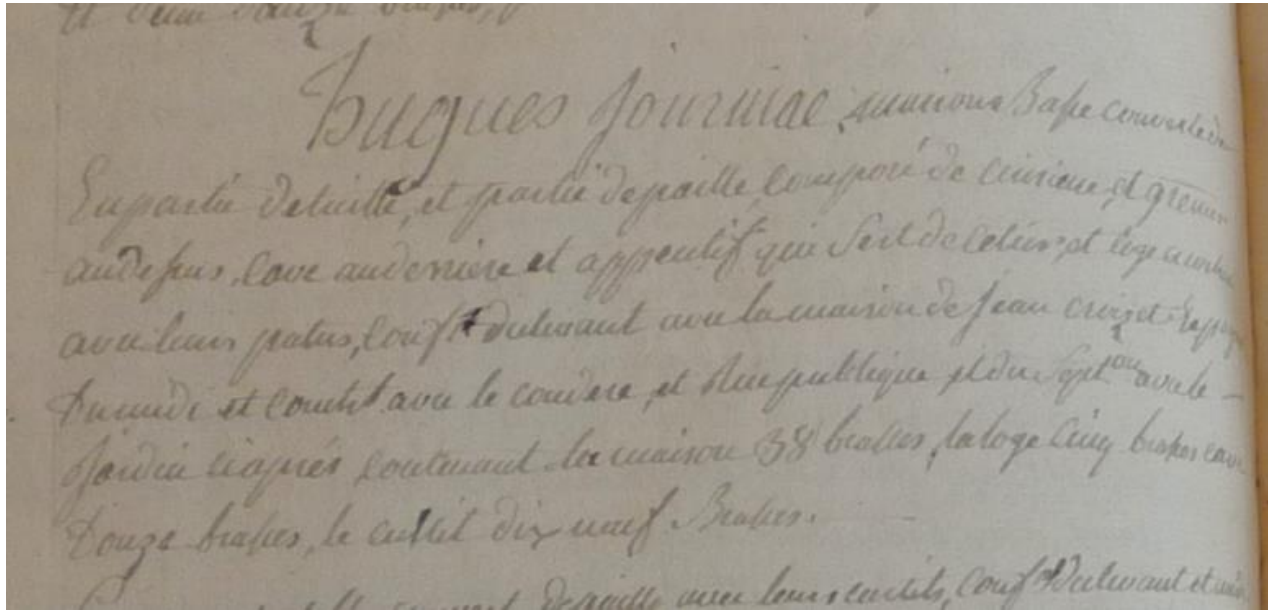 et demi douze brasses,
Hugues Journiac, maison Basse couverte
En partie de tuille, et partie de paille, Composé de Cuisine, et grenier
au dessus, Cave au derriere et appentif qui Sert de et loge a cochon
avec leurs patus, Conf.t du levant avec la maison de Jean Croizet
Du midi et couch.t avec le coudere, et Rue publique, et du Sept.on avec le
Jardin ciaprés Contenant la maison 38 brasses, la loge Cinq brasses cave
Douze brasses, le dix neuf Brasses.
de paille avec leurs conf.t du levant et midi